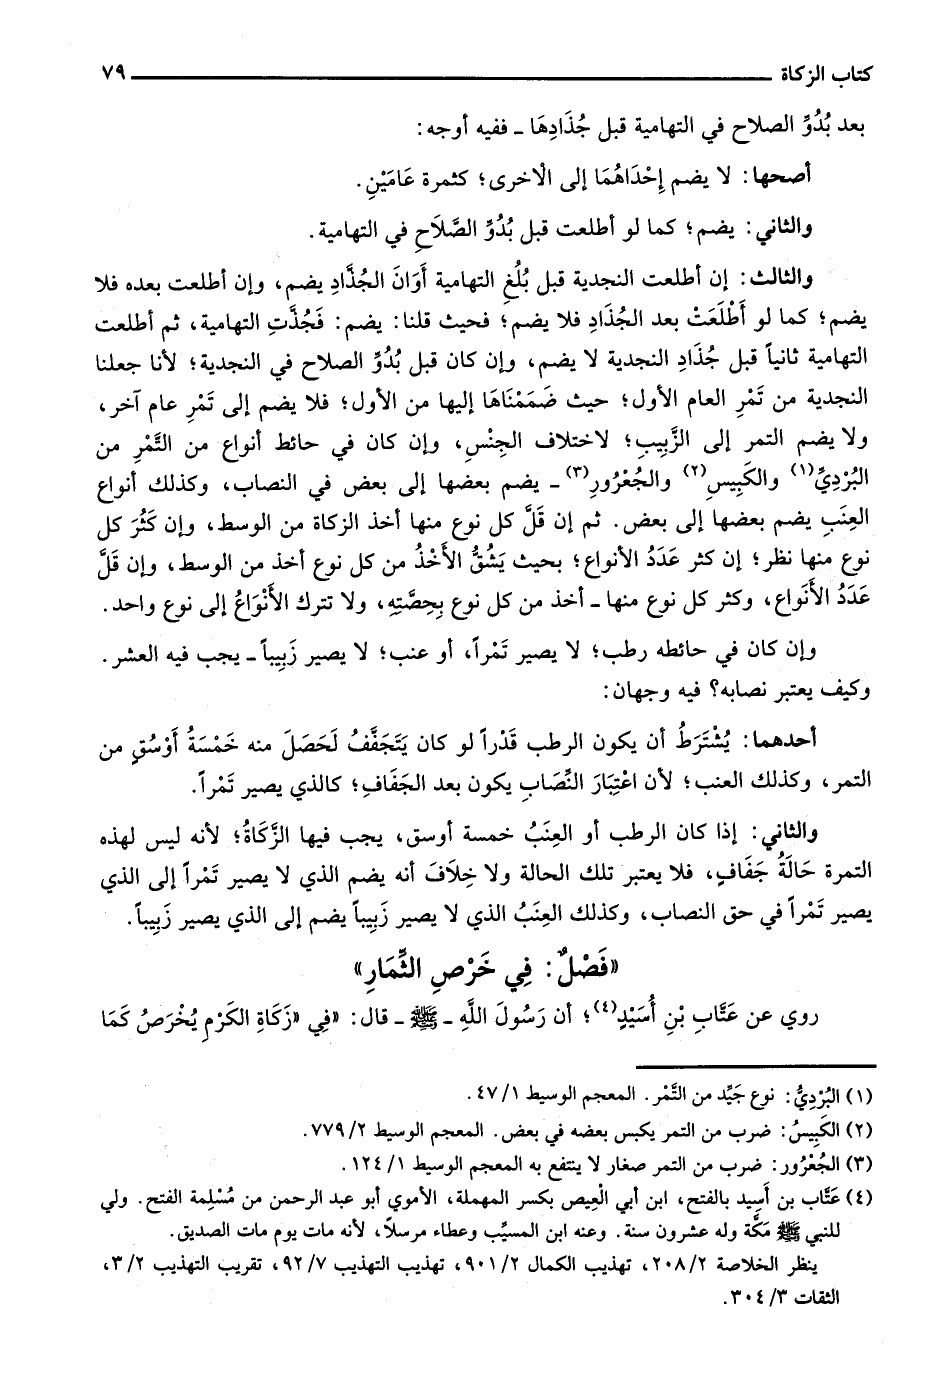 كتاب الزكاة ٧٩
بعد بُدُوِّ الصلاح في التهامية قبل جُذَادِهَا ـ ففيه أوجه:
أصحها: لا يضم إِحْدَاهُمَا إلى الأخرى؛ كثمرة عَامَيْنِ.
والثاني: يضم؛ كما لو أطلعت قبل بُدُوِّ الصَّلَاحِ في التهامية.
والثالث: إن أطلعت النجدية قبل بُلُغِ التهامية أَوَانَ الجُذَّادِ يضم، وإن أطلعت بعده فلا
يضم؛ كما لو أَطْلَعَتْ بعد الجُذَادِ فلا يضم؛ فحيث قلنا: يضم: فَجُذَّتِ التهامية، ثم أطلعت
التهامية ثانياً قبل جُذَادِ النجدية لا يضم، وإن كان قبل بُدُوِّ الصلاح في النجدية؛ لأنا جعلنا
النجدية من تَمْرِ العام الأول؛ حيث ضَمَمْنَاهَا إليها من الأول؛ فلا يضم إلى تَمْرِ عام آخر،
ولا يضم التمر إلى الزَّبِيبِ؛ لاختلاف الجِنْسِ، وإن كان في حائط أنواع من التَّمْرِ من
البُرْدِيِّ(١) والكَبِيسِ(٢) والجُعْرُورِ(٣) ـ يضم بعضها إلى بعض في النصاب، وكذلك أنواع
العِنَبِ يضم بعضها إلى بعض. ثم إن قَلَّ كل نوع منها أخذ الزكاة من الوسط، وإن كَثُرَ كل
نوع منها نظر؛ إن كثر عَدَدُ الأنواع؛ بحيث يَشُقُّ الأَخْذُ من كل نوع أخذ من الوسط، وإن قَلَّ
عَدَدُ الأَنواع، وكثر كل نوع منها ـ أخذ من كل نوع بِحِصَّتِهِ، ولا تترك الأَنْوَاعُ إلى نوع واحد.
وإن كان في حائطه رطب؛ لا يصير تَمْراً، أو عنب؛ لا يصير زَبِيباً ـ يجب فيه العشر.
وكيف يعتبر نصابه؟ فيه وجهان:
أحدهما: يُشْتَرَطُ أن يكون الرطب قَدْراً لو كان يَتَجَفَّفُ لَحَصَلَ منه خَمْسَةُ أَوْسُقٍ من
التمر، وكذلك العنب؛ لأن اعْتِبَارَ النِّصَابِ يكون بعد الجَفَافِ؛ كالذي يصير تَمْراً.
والثاني: إذا كان الرطب أو العِنَبُ خمسة أوسق، يجب فيها الزَّكَاةُ؛ لأنه ليس لهذه
التمرة حَالَةُ جَفَافٍ، فلا يعتبر تلك الحالة ولا خِلَافَ أنه يضم الذي لا يصير تَمْراً إلى الذي
يصير تَمْراً في حق النصاب، وكذلك العِنَبُ الذي لا يصير زَبِيباً يضم إلى الذي يصير زَبِيباً.
«فَصْلٌ: فِي خَرْصِ الثِّمَارِ»
روي عن عَتَّابِ بْنِ أُسَيْدٍ(٤)؛ أن رَسُولَ اللَّهِ ـ ﷺ ـ قال: «فِي «زَكَاةِ الكَرْمِ يُخْرَصُ كَمَا
(١) البُرْدِيُّ: نوع جَيِّد من التَّمْر. المعجم الوسيط ٤٧/١.
(٢) الكَبِيسُ: ضرب من التمر يكبس بعضه في بعض. المعجم الوسيط ٧٧٩/٢.
(٣) الجُعْرُور: ضرب من التمر صغار لا ينتفع به المعجم الوسيط ١٢٤/١.
(٤) عَتَّاب بن أَسِيد بالفتح، ابن أبي الْعِيص بكسر المهملة، الأموي أبو عبد الرحمن من مُسْلِمة الفتح. ولي
للنبي ﷺ مَكَّة وله عشرون سنة. وعنه ابن المسيِّب وعطاء مرسلاً، لأنه مات يوم مات الصديق.
ينظر الخلاصة ٢٠٨/٢، تهذيب الكمال ٩٠١/٢، تهذيب التهذيب ٩٢/٧، تقريب التهذيب ٣/٢،
الثقات ٣٠٤/٣.